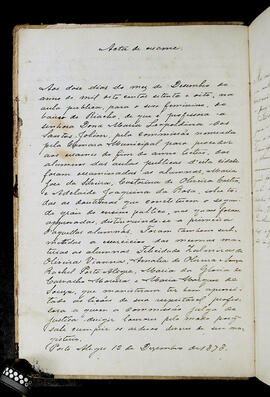 Acta de exame.
Aos doze dias do mez de Dezembro do
anno de mil oito centos setenta e oito, na
aula publica, para o sexo feminino, do
bairro do Riacho, de que é professora a
senhora Dona Maria Leopoldina dos
Santos, pela commissão nomeada
pela Camara Municipal para proceder
aos exames do fim do anno lectivo, dos
alumnos das aulas publicas d'esta cidade
foram examinadas as alumnas Maria
José da Silveira, Constancia de Oliveira
e Adelaide Joaquina da Rosa, sobre to-
das as doutrinas que constituem o segun-
do grau do ensino publico, as quaes foram
approvadas, distinguindo-se a primeira
d'aquellas alumnas. Foram tambem sub-
mettidas a exercicios das mesmas ma-
terias as alumnas
Oliveira Vianna, Amalia de Oliveira e Souza,
Rachel Porto Alegre, Maria da Gloria de
Carvalho e Maria Marques de
Souza, que mostraram ter bem aprovei-
tado as lições de sua respeitavel profes-
sora a quem a commissão julga de
justiça dirigir louvores pelo modo porque
sabe cumprir os arduos deveres de seu ma-
gisterio.
Porto Alegre 12 de Dezembro de 1878.